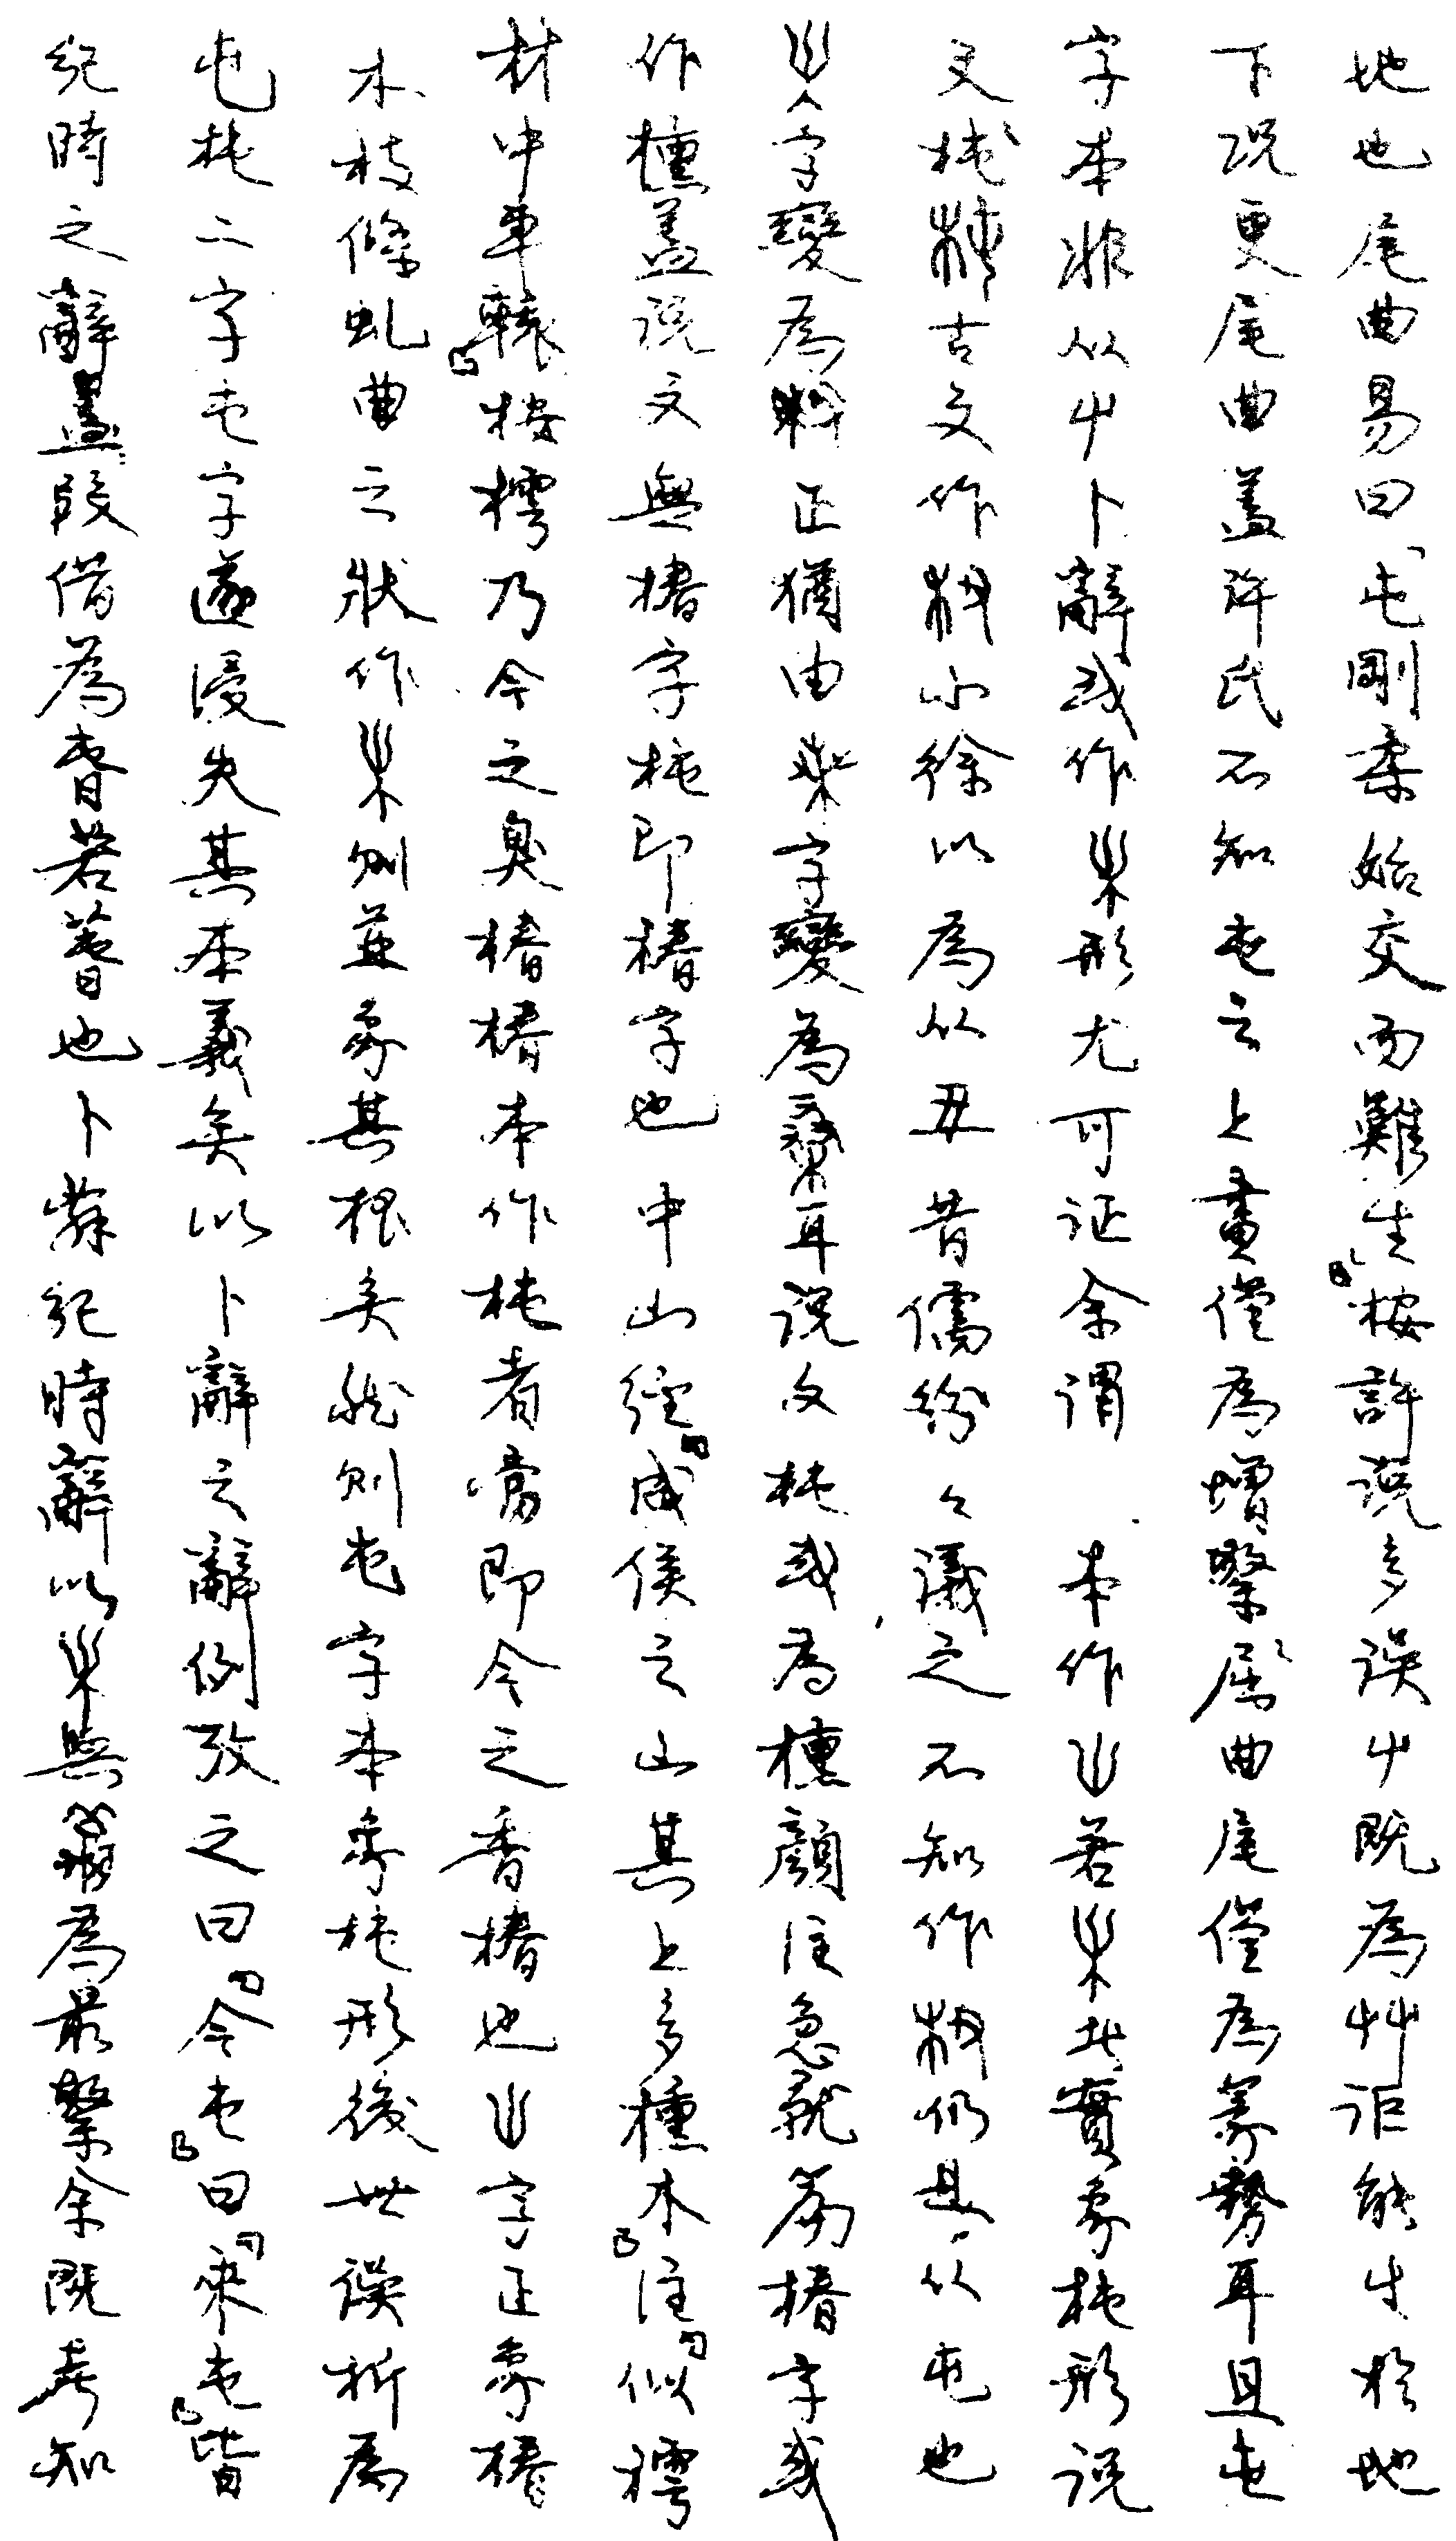 地也尾曲易曰「屯剛柔始交而難生」桉許説多误屮既為艸詎能生於地
下况更尾曲盖许氏不知屯之上畫僅為增繁屈曲尾僅為篆勢耳且屯
字本非从屮卜辭或作形尤可证余谓本作若此實象杶形说
文杶古文作杻小徐以為从丑昔儒紛々議之不知作杻仍是从屯也
字變為正猶由字變為桑耳説文杶或為櫄顔注急就篇椿字或
作櫄盖说文無椿字杶即椿字也中山經「成侯之山其上多櫄木」注「似樗
材中車轅」桉樗乃今之臭椿椿本作杶者當即今之香椿也字正象椿
木枝條虬曲之狀作则並象其根矣然则屯字本象杶形後世误析為
屯杶二字屯字遂浸失其本義矣以卜辭之辭例攷之曰「今屯」曰「來屯」皆
紀時之辭盖叚借為旾若萅也卜辭紀時辭以與為最繁余既考知